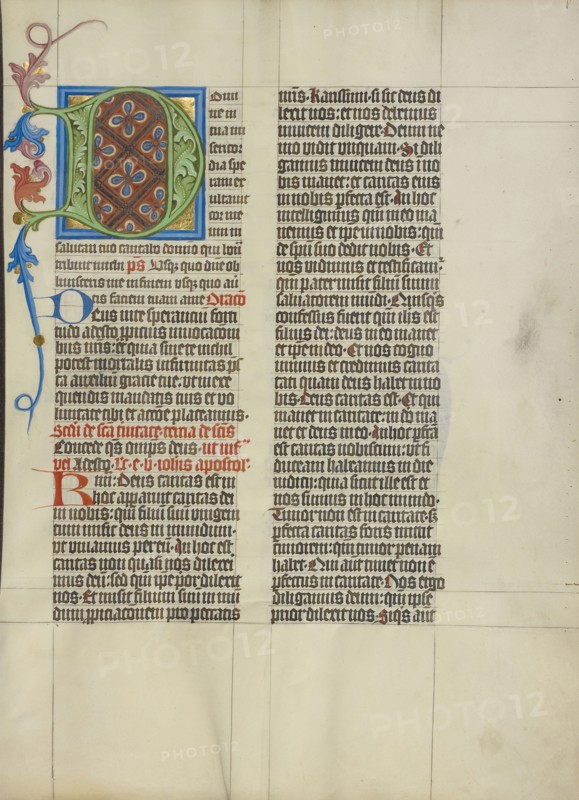 Domi
ne in
tua mi
sericor
dia spe
raui ex
ultauit
cor me
um in
salutari tuo cantabo domino qui bon
tribuit michi ps Usq; quo dne ob
liuisceris me in finem vsq; quo au
tis faciem tuam a me Oracio
Deus in te sperancium forti
tudo adesto ppicius inuocacioni
bus nris: et quia sine te nichil
potest mortalis infirmitas ps
ta auxilium gracie tue: vt in exe
quendis mandatis tuis et vo
luntate tibi et accoe placeamus.
Scda de sca trinitate tercia de scis
Concede qs omps deus. ut int
vel Adesto. Lc. e. b. iohis apostoi.
Rmi: Deus caritas est in
hoc apparuit caritas dei
in nobis: qm filiu suu vnigeni
tum misit deus in mundum.
vt viuamus per eu. In hoc est
caritas non quasi nos dilexeri
mus deu: sed qm ipe por dilexit
nos. Et misit filium suu
ppiciacionem pro peccatis
nris. Karissimi. si sic deus di
lexit nos: et nos debemus
inuicem diligere. Deum ne
mo vidit vnquam. Si dili
gamus inuicem deus i no
bis manet: et caritas eius
in nobis pfecta est. In hoc
intelligimus qm in eo ma
nemus et ipe in nobis: qm
de spu suo dedit nobis. Et
nos vidimus et testificam
qm pater misit filiu suum
saluatorem mudi. Quisqs
confessus fuerit qm ihs est
filius dei: deus in eo manet
et ipe in deo. Et nos cogno
uimus et credimus carita
ti quam deus habet in no
bis. Deus caritas est. Et qui
manet in caritate: in deo ma
net et deus in eo. In hoc pfca
est caritas nobiscum: vt fi
duciam habeamus in die
iudicij: quia sicut ille est et
nos sumus in hoc mundo.
Timor non est in caritate: s;
pfecta caritas foras mittit
timorem: qm timor penam
habet. Qui aut timet non e
pfectus in caritate. Nos ergo
diligamus deum: qm ipse
prior dilexit nos. Siqs aut
PHOTO12